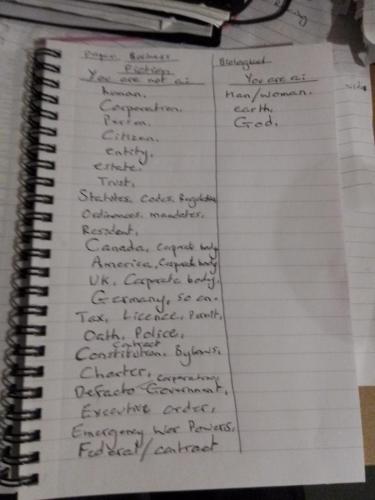 Pagan Business
Fiction
You are not a:
human,
Corporation,
Person,
Citizen,
entity,
estate,
Trust,
Statutes, Codes, Regulations
Ordinances, mandates,
Resident,
Canada, Corporate body
America, Corporate body
UK, Corporate body,
Germany, so on,
Tax, Licence, Permit,
Oath, Police,
contract
Constitution, Bylaws,
Charter, corporations
Defacto Government,
Executive order,
Emergency War Powers,
Federal/contract
Biological
You are a:
Man/woman,
earth,
God,